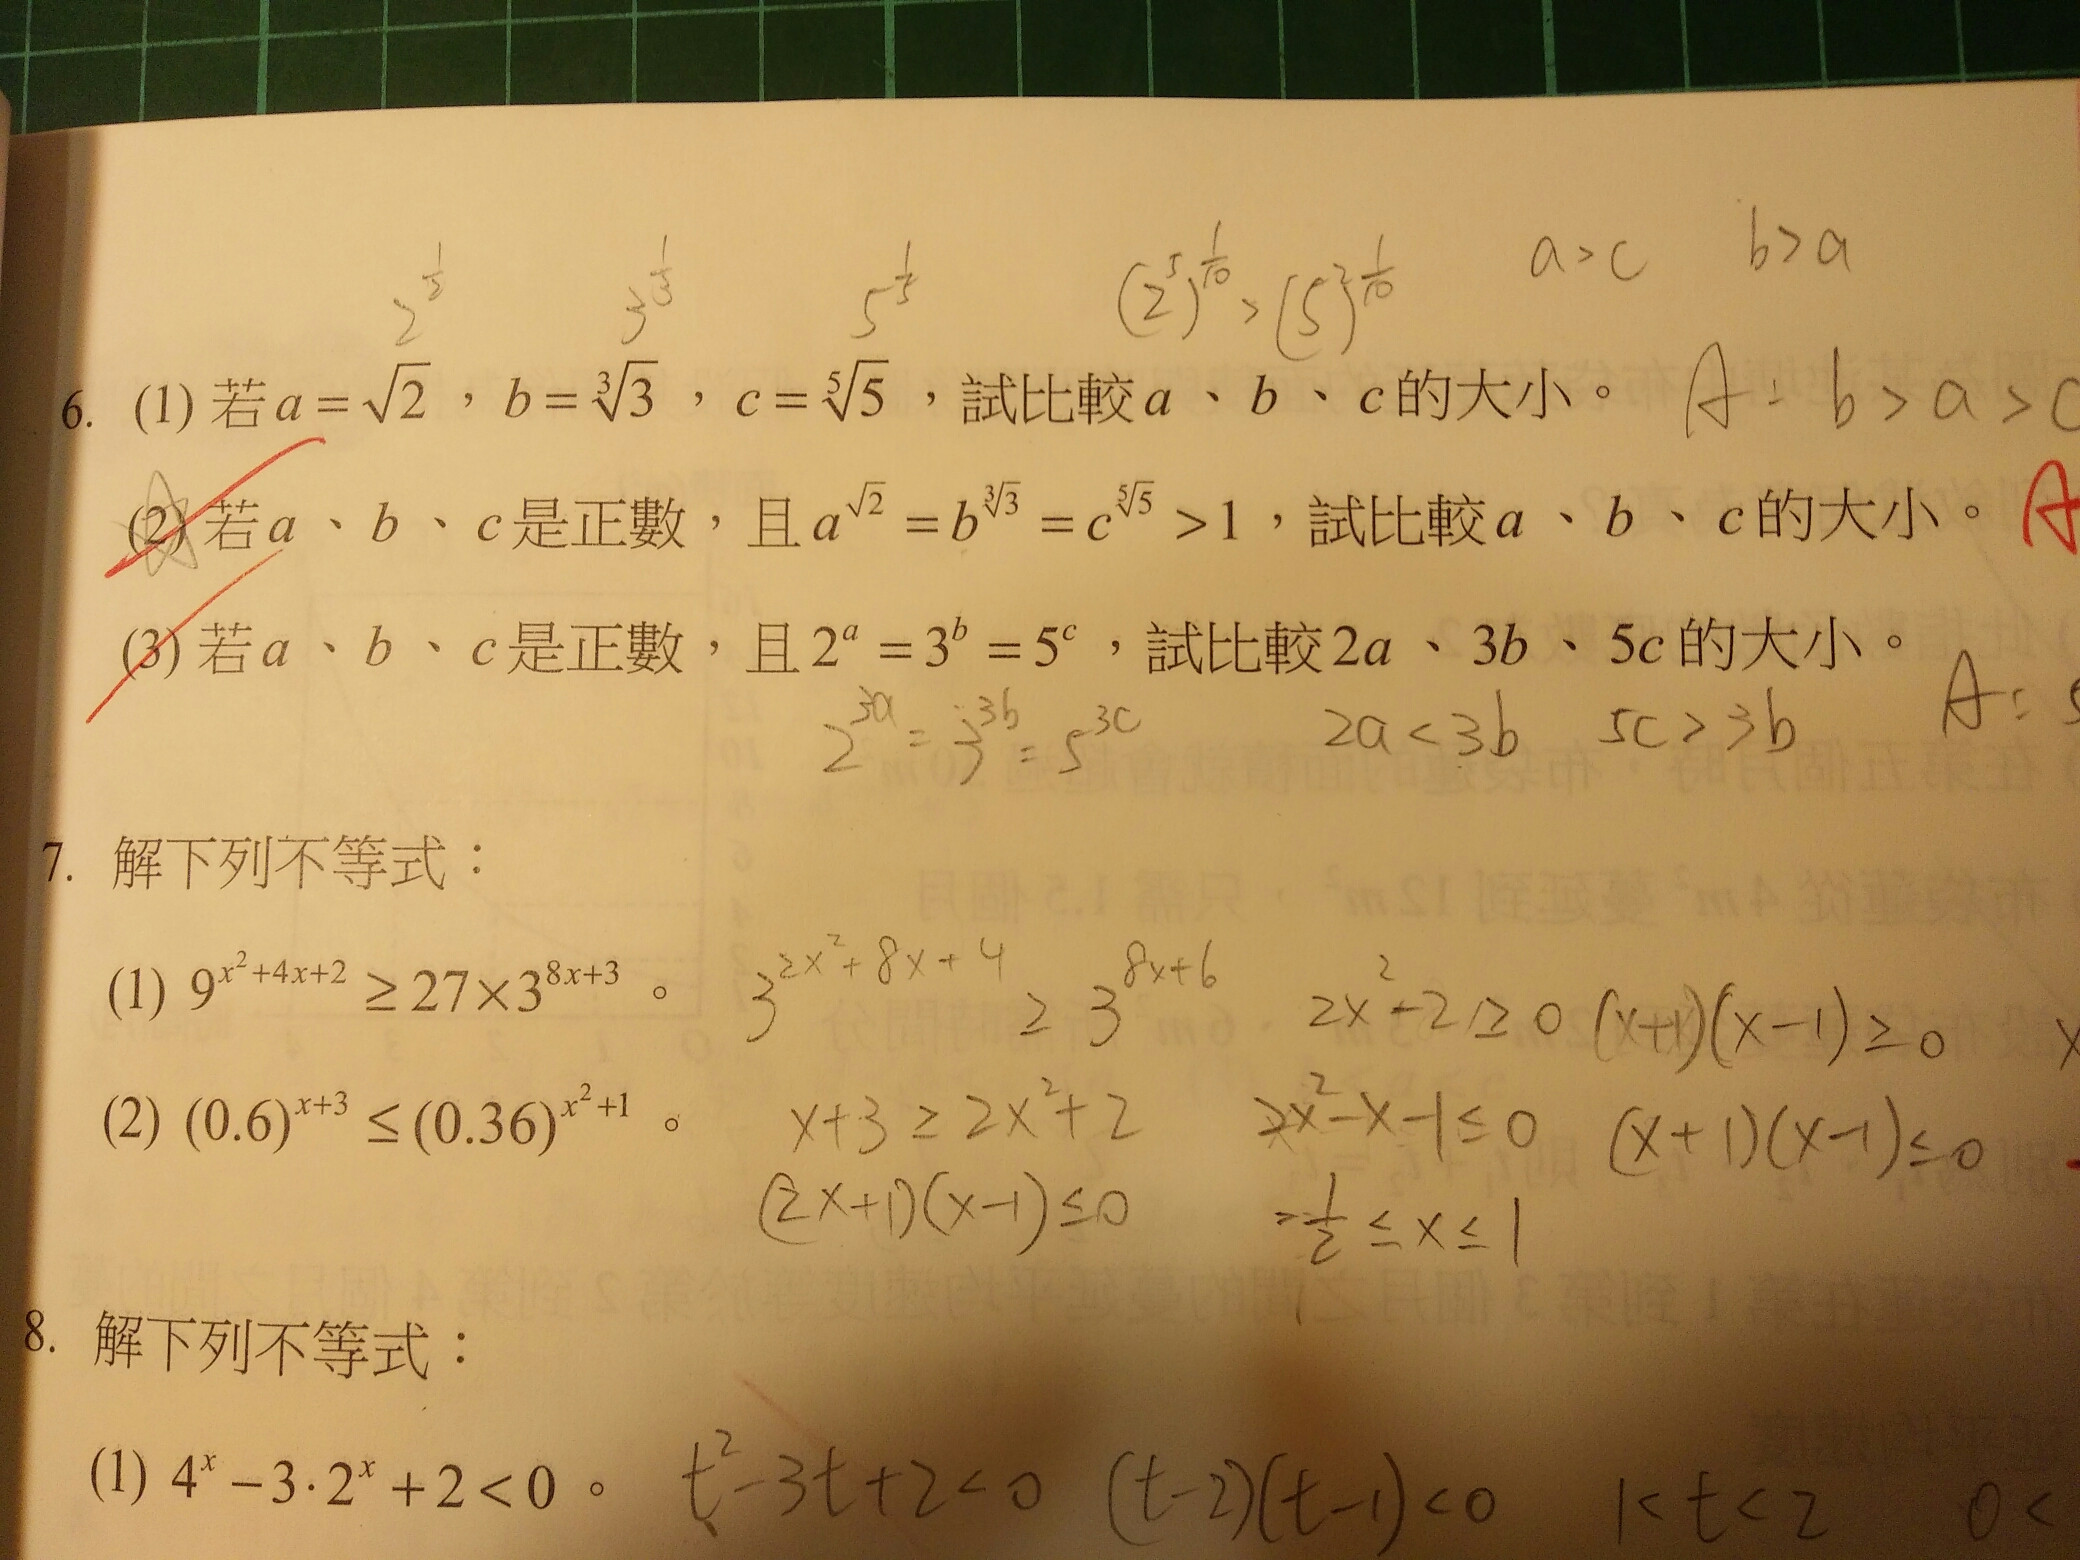 2^{1/2} 3^{1/3} 5^{1/5} (2^5)^{1/10} > (5^2)^{1/10} a>c b>a
6. (1) 若a=√2，b=∛3，c=⁵√5，試比較a、b、c的大小。 A: b>a>c
(2) 若a、b、c是正數，且a^{√2}=b^{∛3}=c^{⁵√5}>1，試比較a、b、c的大小。 A
(3) 若a、b、c是正數，且2^a=3^b=5^c，試比較2a、3b、5c的大小。 A:
2^{3a}=3^{3b}=5^{3c} 2a<3b 5c>3b
7. 解下列不等式：
(1) 9^{x²+4x+2}≥27×3^{8x+3}。 3^{2x²+8x+4}≥3^{8x+6} 2x²-2≥0 (x+1)(x-1)≥0 x
(2) (0.6)^{x+3}≤(0.36)^{x²+1}。 x+3≥2x²+2 2x²-x-1≤0 (x+1)(x-1)≤0
(2x+1)(x-1)≤0 -1/2≤x≤1
8. 解下列不等式：
(1) 4^x-3·2^x+2<0。 t²-3t+2<0 (t-2)(t-1)<0 1<t<2 0<